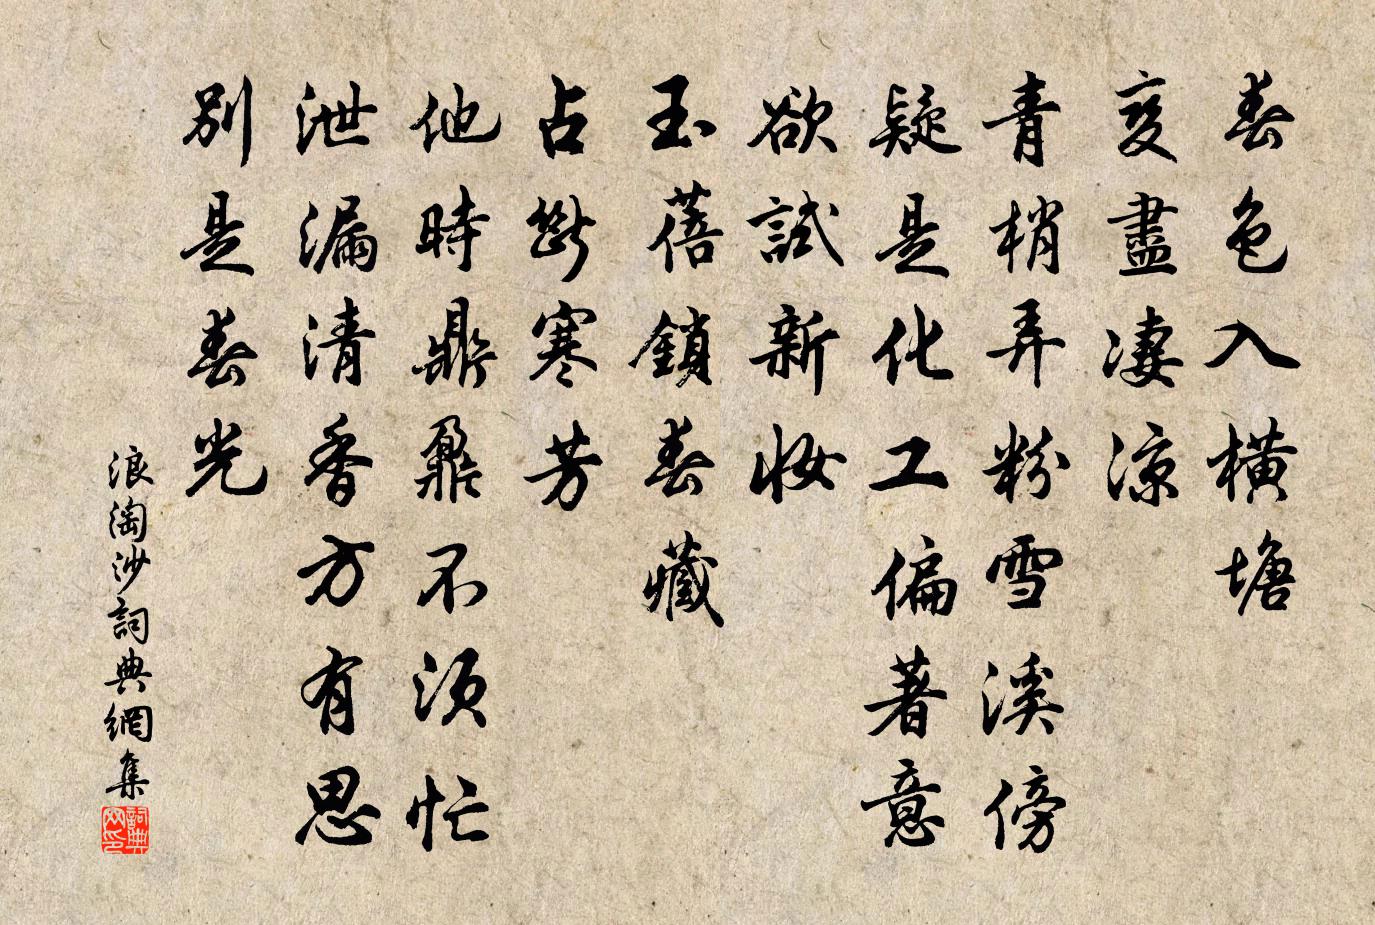 春色入橫塘
變盡凄涼
青梢弄粉雪溪傍
疑是化工偏著意
欲試新妝
玉蓓鎖春藏
占斷寒芳
他時鼎鼐不須忙
泄漏清香方有思
別是春光
浪淘沙詞典網集
詞典网印